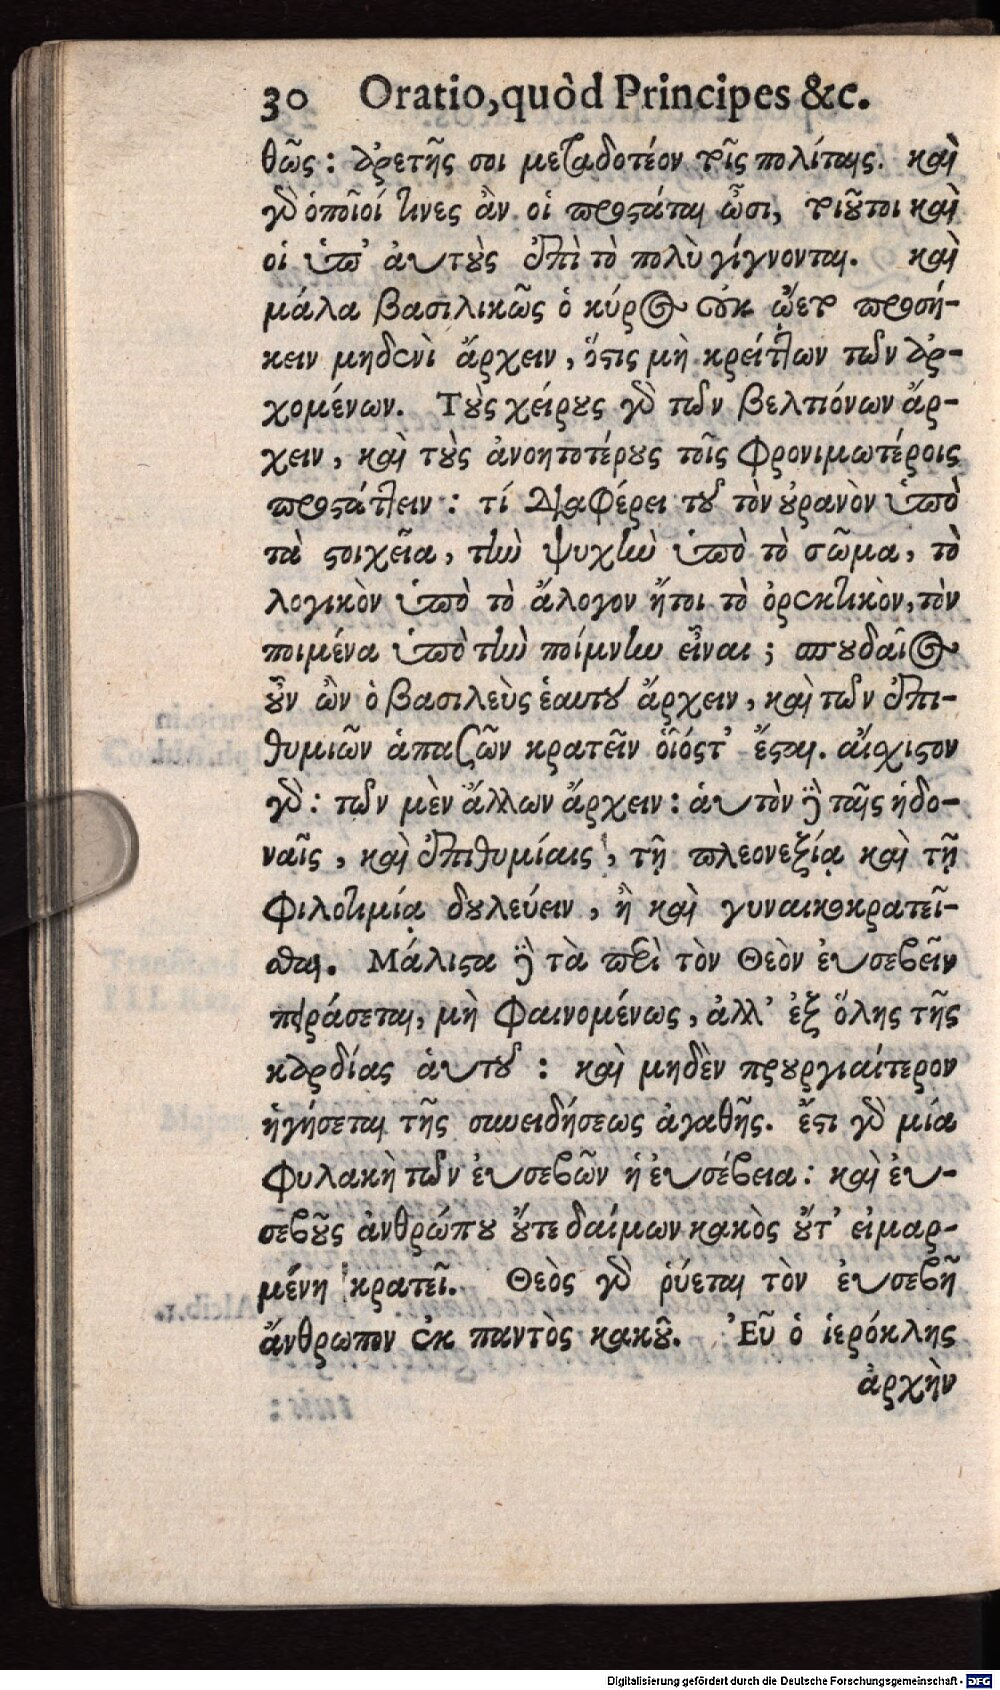 30 Oratio, quòd Principes &c.
θῶς : ἀρετῆς σοι μεταδοτέον τοῖς πολίταις. καὶ
γὸ ὁποῖοί τινες ἂν οἱ προστάται ὦσι, τοιοῦτοι καὶ
οἱ ὑπ' ἀυτοὺς ἐπὶ τὸ πολὺ γίγνονται. καὶ
μάλα βασιλικῶς ὁ κύρος οὐκ ᾤετο προσή-
κειν μηδενὶ ἄρχειν, ὅστις μὴ κρείττων τῶν ἀρ-
χομένων. Τοὺς χείρους γὸ τῶν βελτιόνων ἄρ-
χειν, καὶ τοὺς ἀνοητοτέρους τοῖς φρονιμωτέροις
προστάττειν : τί διαφέρει τοῦ τὸν οὐρανὸν ὑπὸ
τὰ στοιχεῖα, τὴν ψυχὴν ὑπὸ τὸ σῶμα, τὸ
λογικὸν ὑπὸ τὸ ἄλογον ἤτοι τὸ ὀρεκτικὸν, τὸν
ποιμένα ὑπὸ τὴν ποίμνην εἶναι ; σπουδαῖος
οὖν ὢν ὁ βασιλεὺς ἑαυτοῦ ἄρχειν, καὶ τῶν ἐπι-
θυμιῶν ἁπασῶν κρατεῖν οἷόςτ' ἔσται. αἴσχιστον
γὸ : τῶν μὲν ἄλλων ἄρχειν : ἁυτὸν δὲ ταῖς ἡδο-
ναῖς, καὶ ἐπιθυμίαις, τῇ πλεονεξίᾳ καὶ τῇ
φιλοτιμίᾳ δουλεύειν, ἢ καὶ γυναικοκρατεῖ-
σθαι. Μάλιστα δὲ τὰ περὶ τὸν Θεὸν ἐυσεβεῖν
πειράσεται, μὴ φαινομένως, ἀλλ' ἐξ ὅλης τῆς
καρδίας ἁυτοῦ : καὶ μηδὲν προυργιαίτερον
ἡγήσεται τῆς συνειδήσεως ἀγαθῆς. ἔστι γὸ μία
φυλακὴ τῶν ἐυσεβῶν ἡ ἐυσέβεια : καὶ ἐυ-
σεβοῦς ἀνθρώπου οὔτε δαίμων κακὸς οὔτ' εἱμαρ-
μένη κρατεῖ. Θεὸς γὸ ῥύεται τὸν ἐυσεβῆ
ἄνθρωπον ἐκ παντὸς κακοῦ. Ἐῦ ὁ ἱερόκλης
ἀρχὴν
Digitalisierung gefördert durch die Deutsche Forschungsgemeinschaft - DFG